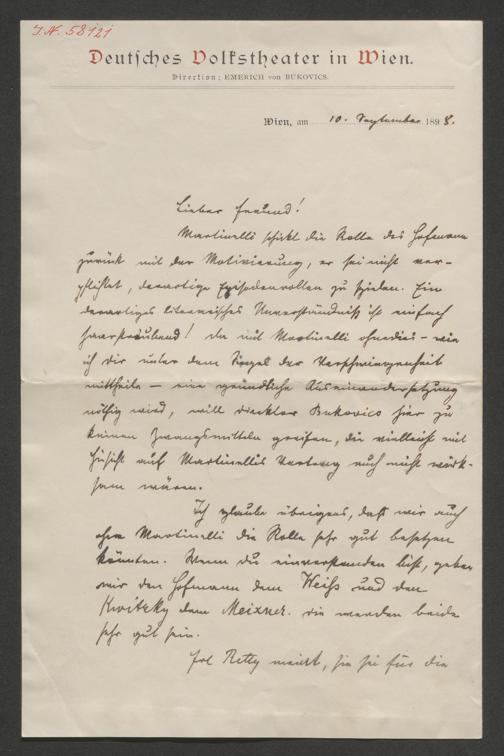 I.N. 58121
Deutsches Volkstheater in Wien.
Direction: EMERICH von BUKOVICS.
Wien, am 10. September 1898.
Lieber Freund!
Martinelli schickt die Rolle des Hofmann
zurück mit der Motivierung, er sei nicht ver-
pflichtet, derartige Episodenrollen zu spielen. Ein
derartiges literarisches Unverständniß ist einfach
haarsträubend! Da mit Martinelli ohnedies – wie
ich Dir unter dem Siegel der Verschwiegenheit
mittheile – eine gründliche Auseinandersetzung
nöthig wird, will Direktor Bukovics hier zu
keinen Zwangsmitteln greifen, die vielleicht mit
Hinsicht auf Martinellis Vertrag auch nicht wirk-
sam wären.
Ich glaube übrigens, daß wir auch
ohne Martinelli die Rolle sehr gut besetzen
könnten. Wenn du einverstanden bist, geben
wir den Hofmann dem Weiß und den
Kwitzky dem Meixner. Sie werden beide
sehr gut sein.
Frl Retty meint, sie sei für die